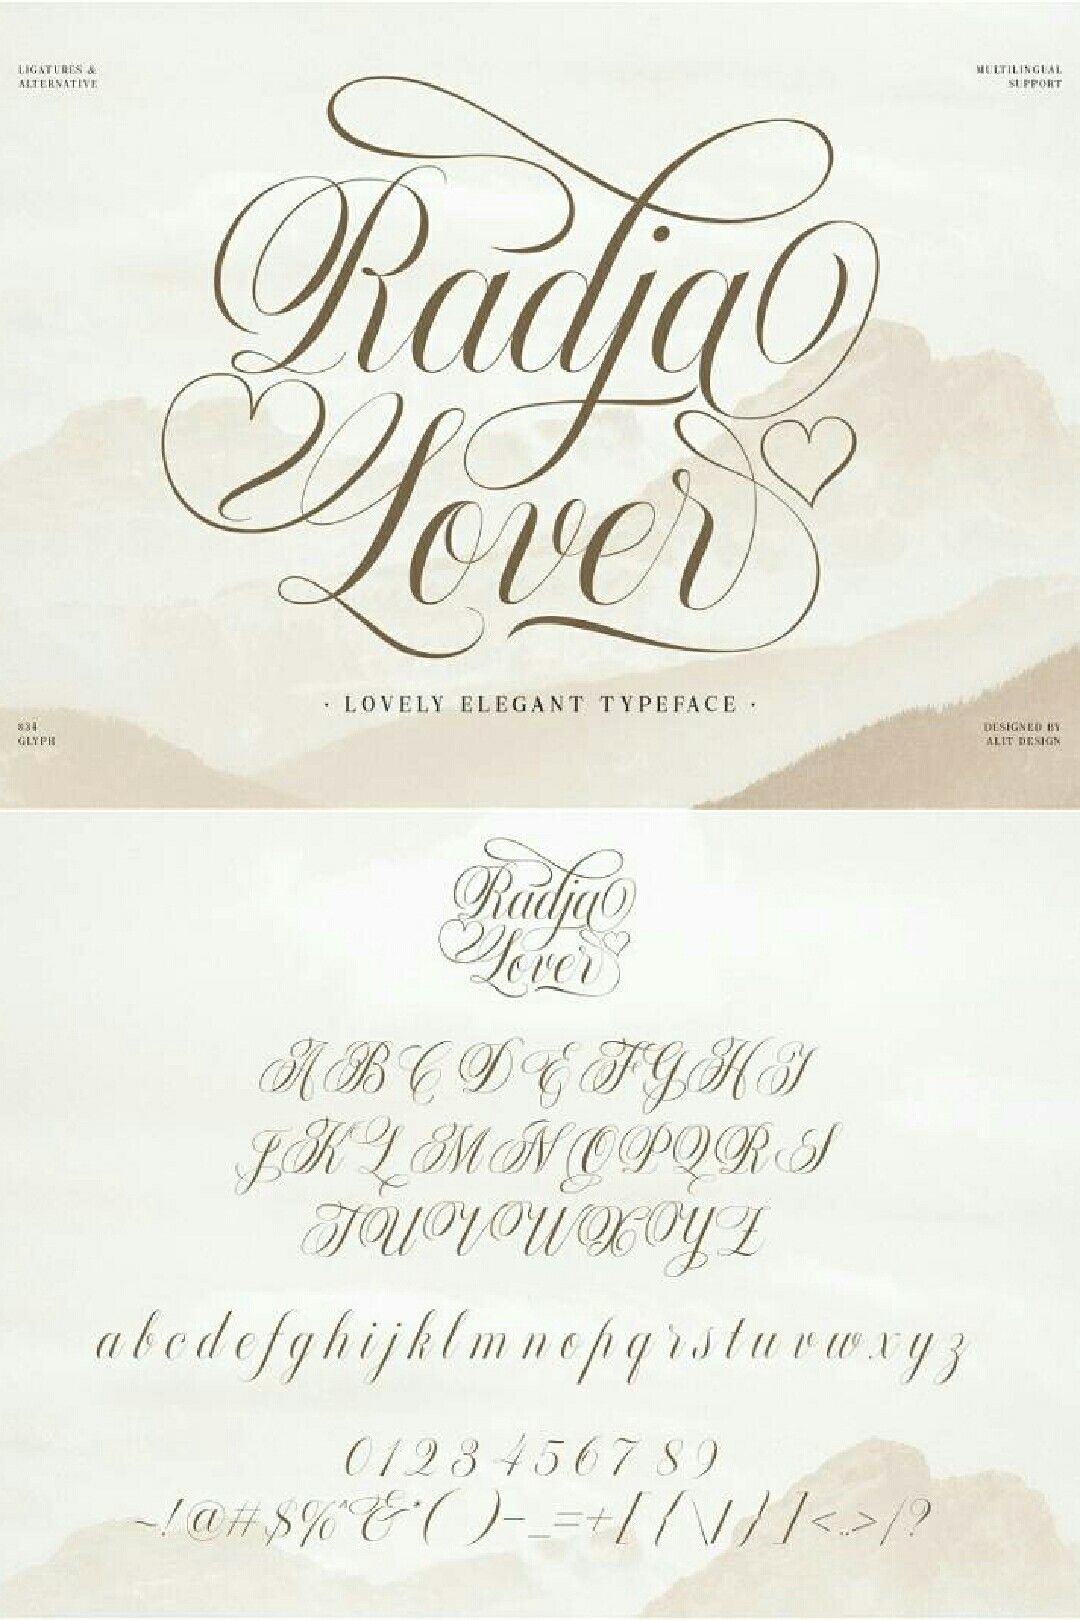 LIGATURES &
ALTERNATIVE
MULTILINGUAL
SUPPORT
Radja
Lover
· LOVELY ELEGANT TYPEFACE ·
834
GLYPH
DESIGNED BY
ALIT DESIGN
Radja
Lover
A B C D E F G H I
J K L M N O P Q R S
T U V W X Y Z
a b c d e f g h i j k l m n o p q r s t u v w x y z
0 1 2 3 4 5 6 7 8 9
~ ! @ # $ % ^ & * ( ) - _ = + [ { \ | } ] < . . > / ?